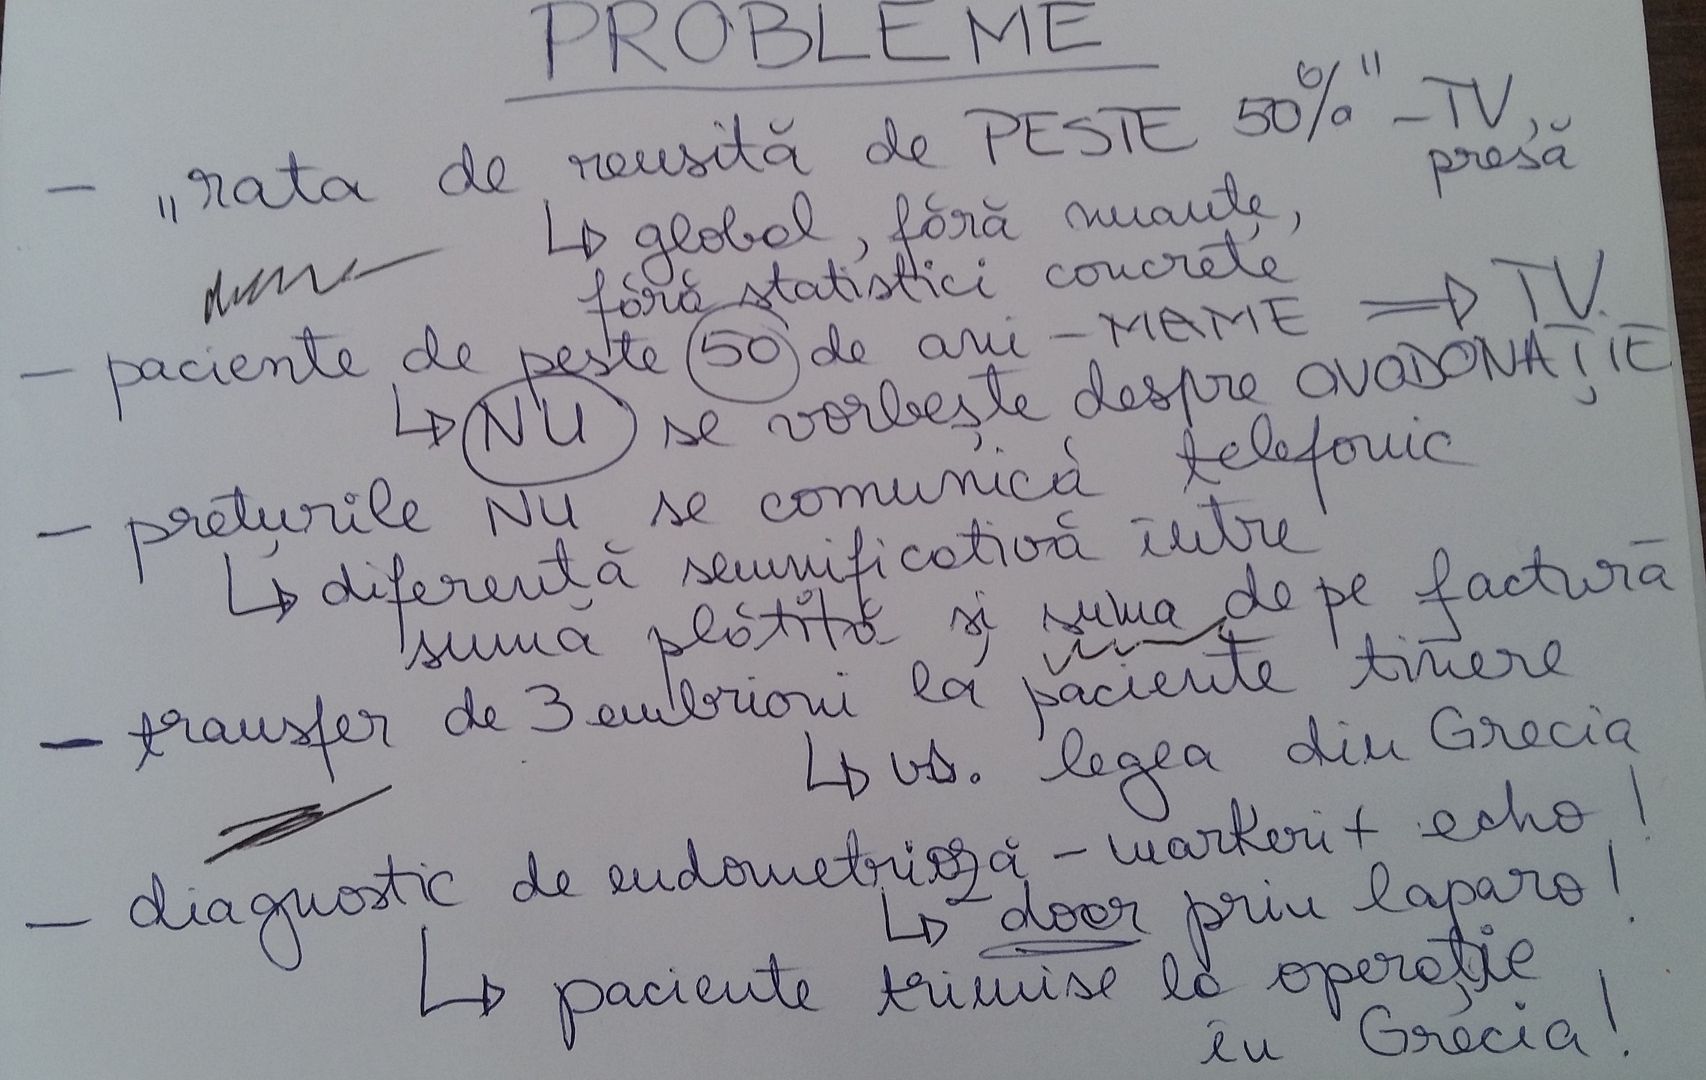 PROBLEME
- „rata de reusită de PESTE 50%" - TV,
presă
↳ global, fără nuanțe,
fără statistici concrete
- paciente de peste 50 de ani - MAME ⇒ TV.
↳ NU se vorbește despre OVODONAȚIE
- prețurile NU se comunică telefonic
↳ diferență semnificativă între
sumă plătită și suma de pe factură
- transfer de 3 embrioni la paciente tinere
↳ vs. legea din Grecia
- diagnostic de endometrioză - markeri + echo!
↳ doar prin laparo!
↳ paciente trimise la operație
în Grecia!